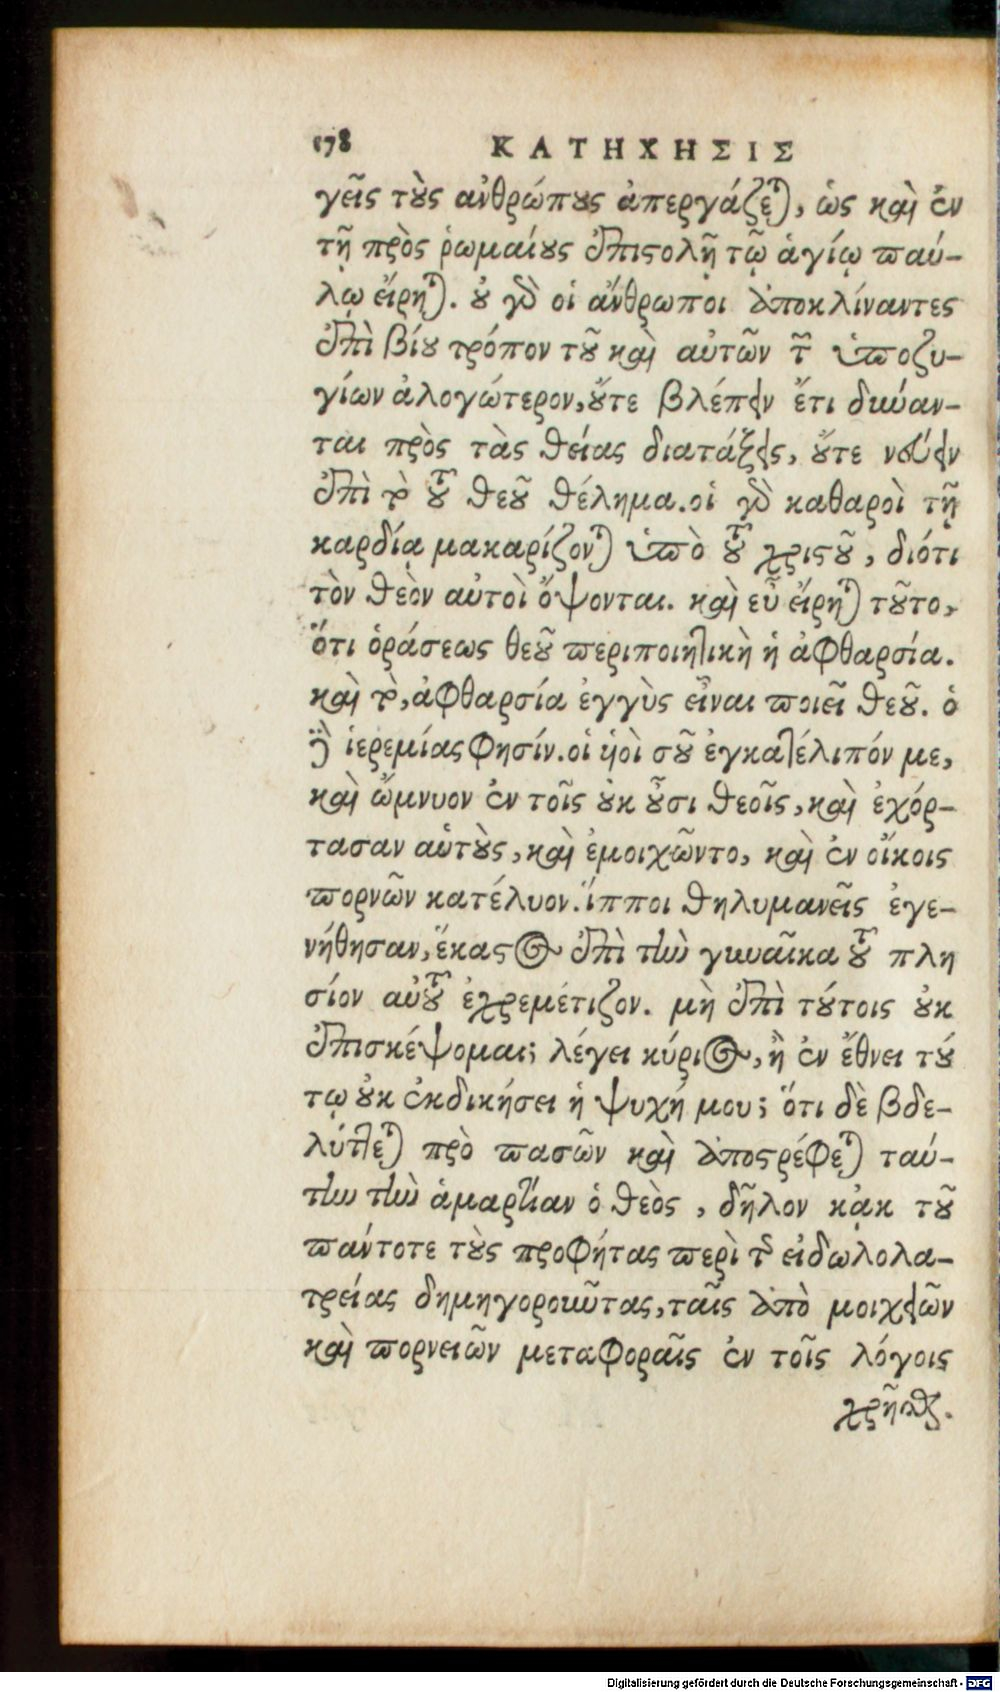 178 ΚΑΤΗΧΗΣΙΣ
γεῖς τοὺς ἀνθρώπους ἀπεργάζεται, ὡς καὶ ἐν
τῇ πρὸς ῥωμαίους ἐπιστολῇ τῷ ἁγίῳ παύ-
λῳ εἴρηται. οὐ γὰρ οἱ ἄνθρωποι ἀποκλίναντες
ἐπὶ βίου τρόπον τοῦ καὶ αὐτῶν τῶν ὑποζυ-
γίων ἀλογώτερον, οὔτε βλέπειν ἔτι δύναν-
ται πρὸς τὰς θείας διατάξεις, οὔτε νεύειν
ἐπὶ τὸ τοῦ θεοῦ θέλημα. οἱ γὰρ καθαροὶ τῇ
καρδίᾳ μακαρίζονται ὑπὸ τοῦ χριστοῦ, διότι
τὸν θεὸν αὐτοὶ ὄψονται. καὶ εὖ εἴρηται τοῦτο,
ὅτι ὁράσεως θεοῦ περιποιητικὴ ἡ ἀφθαρσία.
καὶ τὸ, ἀφθαρσία ἐγγὺς εἶναι ποιεῖ θεοῦ. ὁ
δὲ ἱερεμίας φησίν. οἱ υἱοὶ σοῦ ἐγκατέλιπόν με,
καὶ ὤμνυον ἐν τοῖς οὐκ οὖσι θεοῖς, καὶ ἐχόρ-
τασαν αὐτοὺς, καὶ ἐμοιχῶντο, καὶ ἐν οἴκοις
πορνῶν κατέλυον. ἵπποι θηλυμανεῖς ἐγε-
νήθησαν, ἕκαστος ἐπὶ τὴν γυναῖκα τοῦ πλη
σίον αὐτοῦ ἐχρεμέτιζον. μὴ ἐπὶ τούτοις οὐκ
ἐπισκέψομαι; λέγει κύριος, ἢ ἐν ἔθνει τού
τῳ οὐκ ἐκδικήσει ἡ ψυχή μου; ὅτι δὲ βδε-
λύττεται πρὸ πασῶν καὶ ἀποστρέφεται ταύ-
την τὴν ἁμαρτίαν ὁ θεὸς, δῆλον κᾀκ τοῦ
πάντοτε τοὺς προφήτας περὶ τῆς εἰδωλολα-
τρείας δημηγοροῦντας, ταῖς ἀπὸ μοιχειῶν
καὶ πορνειῶν μεταφοραῖς ἐν τοῖς λόγοις
χρῆσθαι.
Digitalisierung gefördert durch die Deutsche Forschungsgemeinschaft - DFG